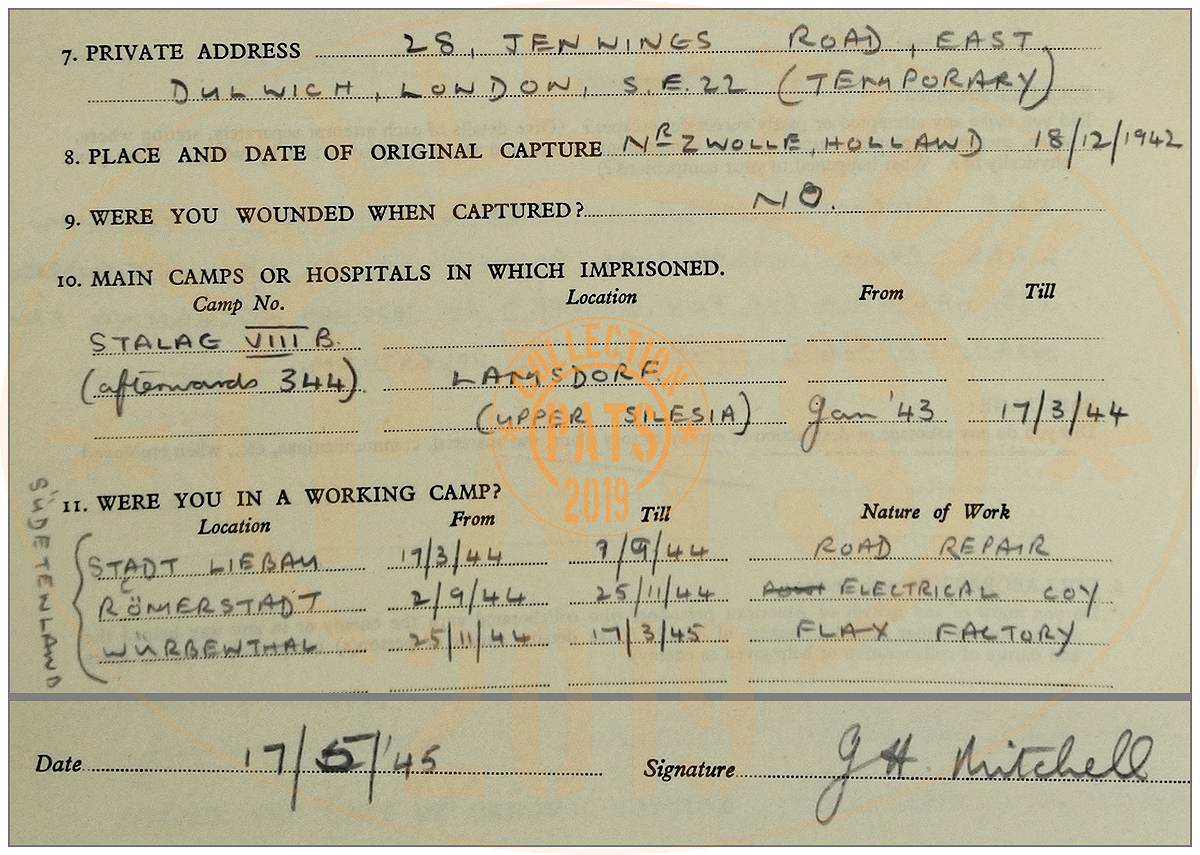 7. PRIVATE ADDRESS 28, JENNINGS ROAD, EAST
DULWICH, LONDON, S.E. 22 (TEMPORARY)
8. PLACE AND DATE OF ORIGINAL CAPTURE NR ZWOLLE, HOLLAND 18/12/1942
9. WERE YOU WOUNDED WHEN CAPTURED? NO.
10. MAIN CAMPS OR HOSPITALS IN WHICH IMPRISONED.
Camp No. Location From Till
STALAG VIII B.
(afterwards 344) LAMSDORF
(UPPER SILESIA) Jan '43 17/3/44
COLLECTION
PATS
2019
11. WERE YOU IN A WORKING CAMP?
Location From Till Nature of Work
SÜDETENLAND
STADT LIEBAU 17/3/44 7/9/44 ROAD REPAIR
RÖMERSTADT 2/9/44 25/11/44 ELECTRICAL COY
WÜRBENTHAL 25/11/44 17/3/45 FLAX FACTORY
Date 17/5/'45 Signature G H. Mitchell